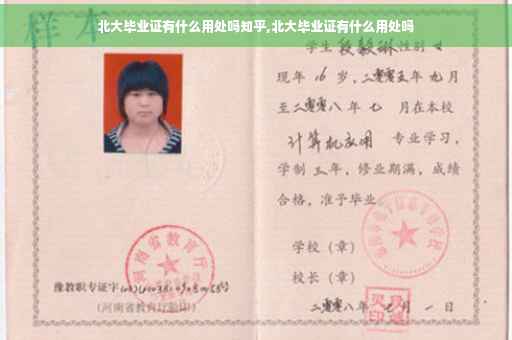 北大毕业证有什么用处吗知乎,北大毕业证有什么用处吗
样本
学生 段毅琳 性别 女
现年 16 岁，二零零五年 九月
至二零零八年 七 月在本校
计算机应用 专业学习，
学制 三年，修业期满，成绩
合格，准予毕业
学校（章）
校长（章）
二零零八年 月 一 日
河南省教育厅
豫教职专证字
（河南省教育厅验印）